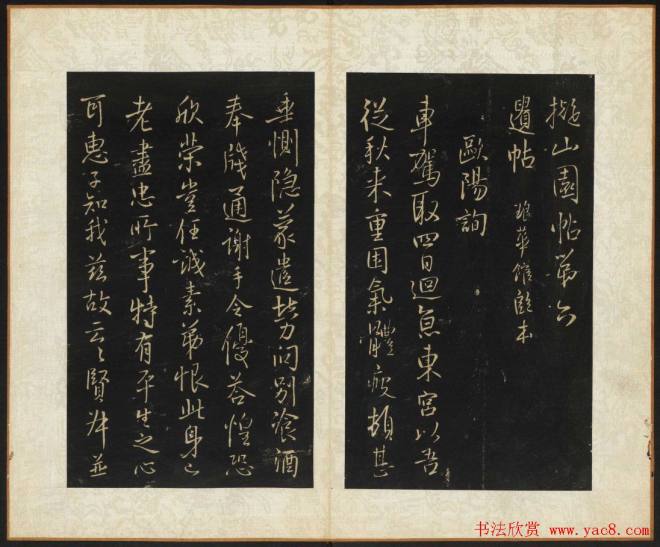 擬山園帖第六
遺帖 琅華館
歐陽詢
車駕取四日迴鳥東宮以吾
從秋來重困氣體疲頓甚
垂惻隱蒙遣怒問別湌酒
奉牋通謝手令優答惶恐
欣榮豈任誠素弟恨此身已
老盡忠所事特有平生之心
可惠子知我茲故云々賢舛並
书法欣赏 www.yac8.com